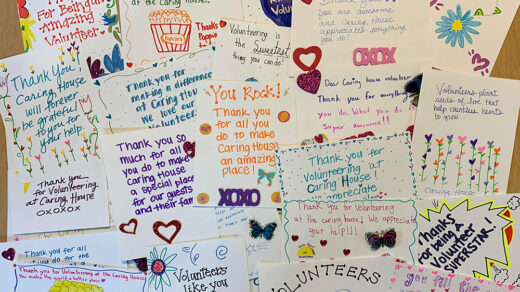 for Being an
Amazing
Volunteer
at the Caring House
Popcorn
Thanks
Volunteering is
the Sweetest
thing you can do!
you are awesome
and Caring House
appreciates everything
you do!
XOXO
Thank You!
Caring House
will forever
be grateful
to you for
your help.
Thank you
for Volunteering
at Caring
House
OXOXOX
Thank you for
making a difference
at Caring Hou
we love our
Thank you so
much for all
you do to make
caring House
a special place
for our guests
and their fam
You Rock!
Thank you
for all you
do to make
Caring House
an amazing
place!
XOXO
Dear Caring house volunteer
Thank you for
you do. What you do
Super awesome!!!
Volunteers plant
seeds of love that
help countless hearts
to grow.
Caring House
Thank you for
Volunteering at
Caring House!
we appreciate
Thank you for Volunteering
at the caring house! We appreciate
your help!!!
Thanks
for being a
Volunteer
SUPERSTAR!
Thank you for all
Thank you for Volunteering at the Caring House
You make the world a better place
Volunteers
like you
VOLUNTEERS